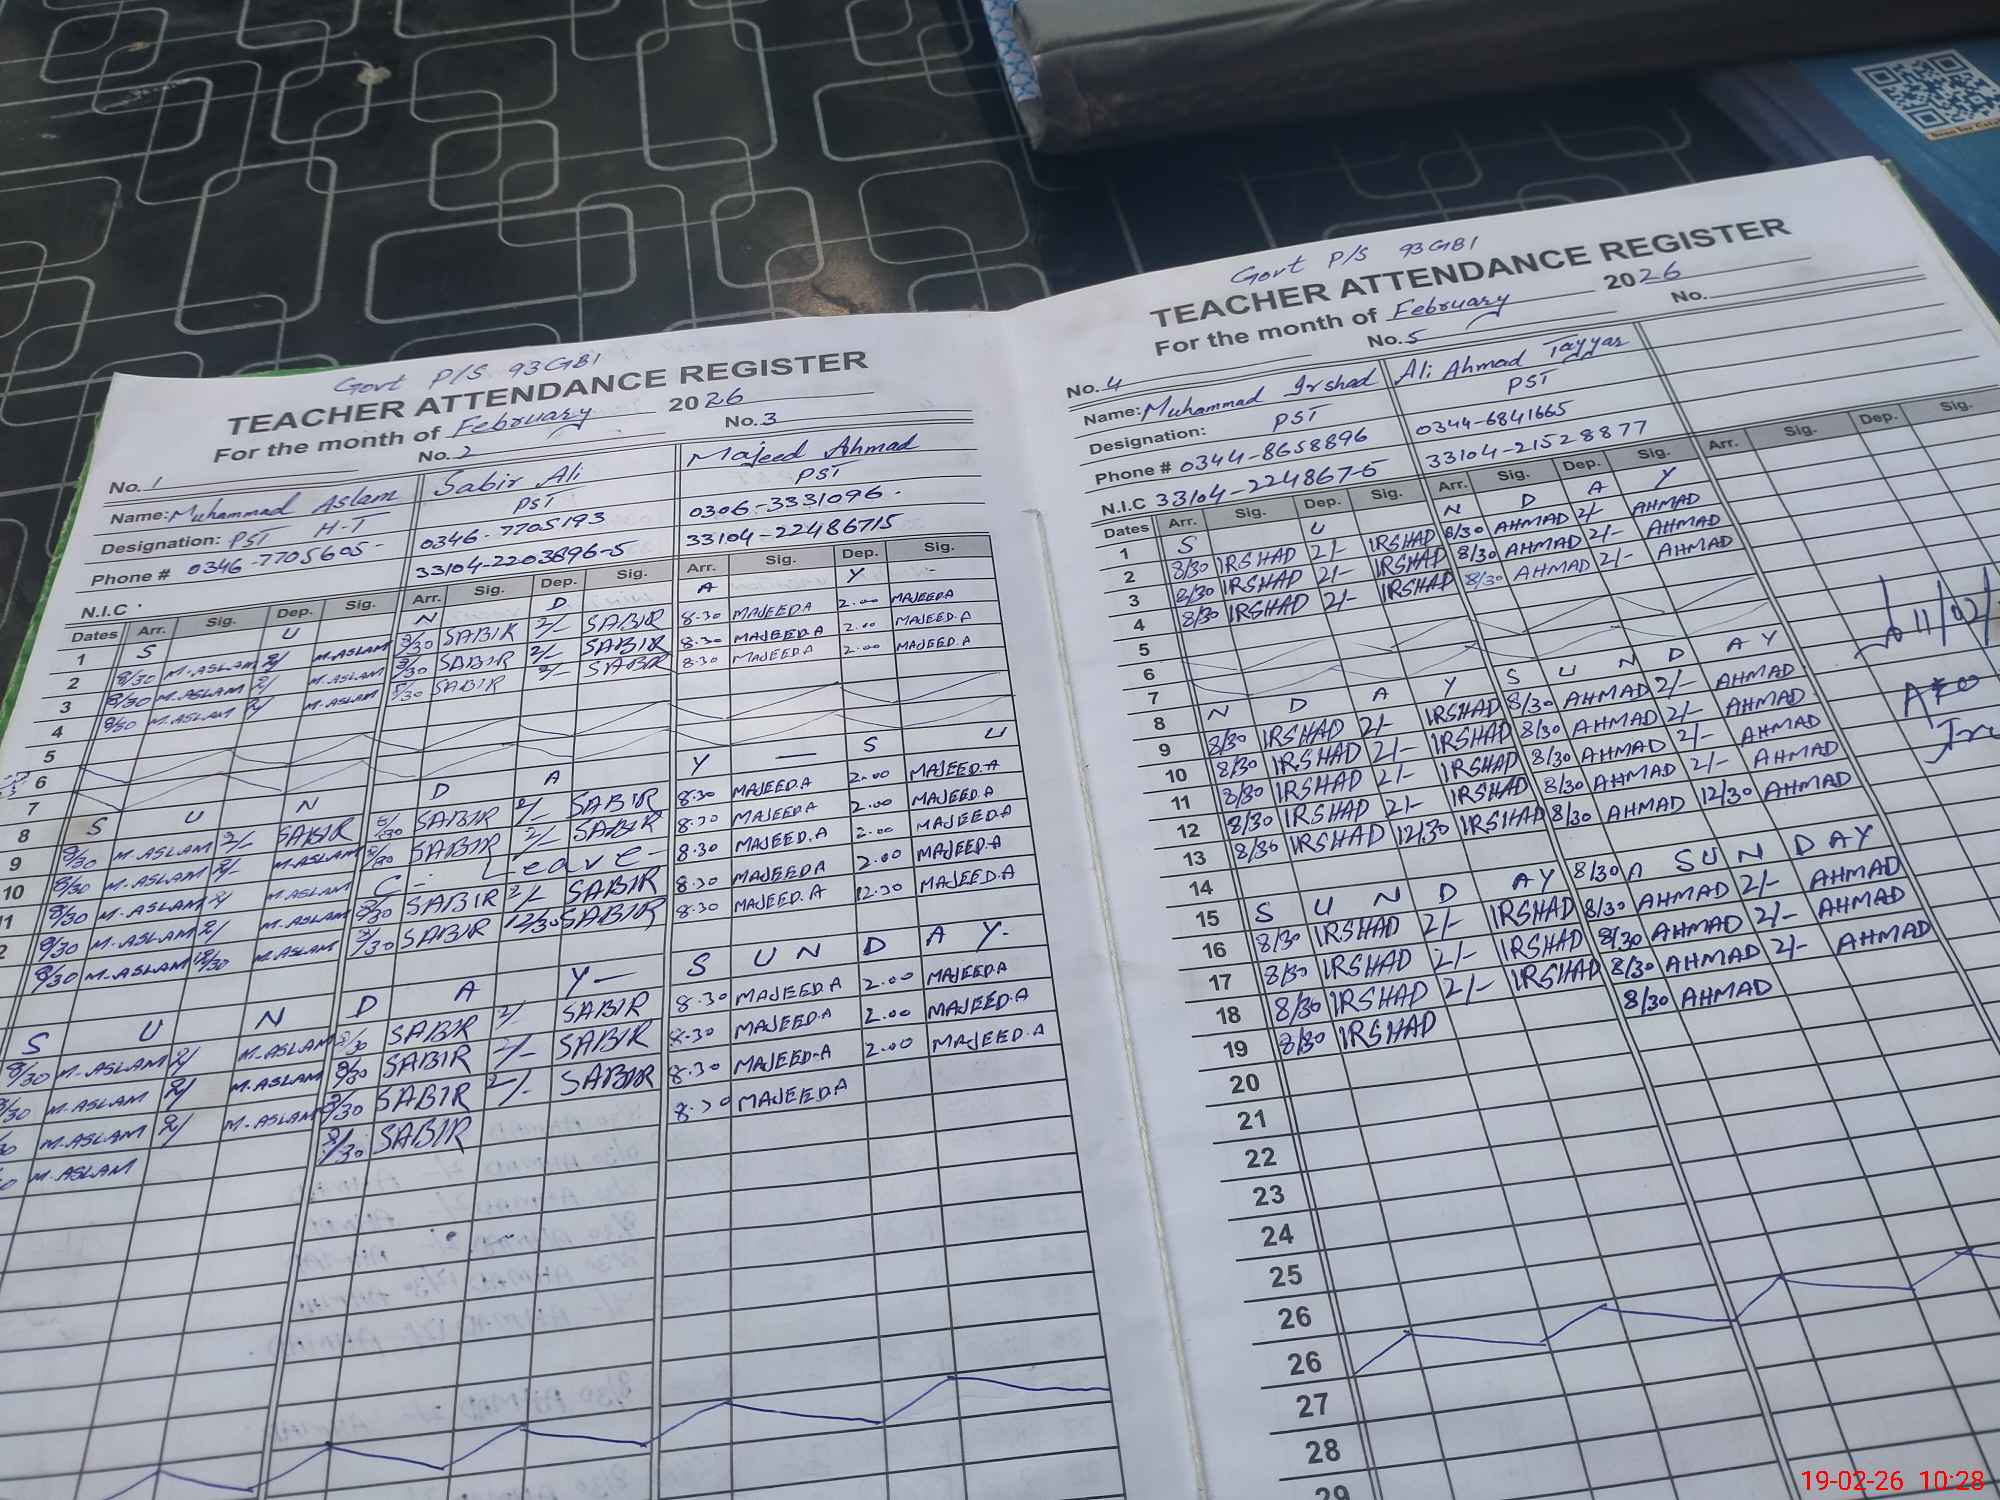 Govt P/S 93GB1
TEACHER ATTENDANCE REGISTER
For the month of February 2026
No. 1 No. 2 No. 3
Name: Muhammad Aslam Sabir Ali Majeed Ahmad
Designation: PST H-T PST PST
Phone # 0346-7705605- 0346-7705193 0306-3331096.
N.I.C 33104-2203896-5 33104-22486715
Dates Arr. Sig. Dep. Sig. Arr. Sig. Dep. Sig. Arr. Sig. Dep. Sig.
1 S U N D A Y
2 8/30 M.ASLAM 2/ M.ASLAM 8/30 SABIR 2/- SABIR 8.30 MAJEED.A 2.00 MAJEED.A
3 8/30 M.ASLAM 2/ M.ASLAM 8/30 SABIR 2/- SABIR 8.30 MAJEED.A 2.00 MAJEED.A
4 8/30 M.ASLAM 2/ M.ASLAM 8/30 SABIR 2/- SABIR 8.30 MAJEED.A 2.00 MAJEED.A
5
6
7
8 S U N D A Y - S U
9 8/30 M.ASLAM 2/- SABIR 8/30 SABIR 2/- SABIR 8.30 MAJEED.A 2.00 MAJEED.A
10 8/30 M.ASLAM 2/- M.ASLAM 8/30 SABIR 2/- SABIR 8.30 MAJEED.A 2.00 MAJEED.A
11 8/30 M.ASLAM 2/ M.ASLAM C- Leave- 8.30 MAJEED.A 2.00 MAJEED.A
2 8/30 M.ASLAM 2/ M.ASLAM 8/30 SABIR 2/- SABIR 8.30 MAJEED.A 2.00 MAJEED.A
8/30 M.ASLAM 12/30 M.ASLAM 8/30 SABIR 12/30 SABIR 8.30 MAJEED.A 12.30 MAJEED.A
S U N D A Y- S U N D A Y.
8/30 M.ASLAM 2/ M.ASLAM 8/30 SABIR 2/ SABIR 8.30 MAJEED.A 2.00 MAJEED.A
8/30 M.ASLAM 2/ M.ASLAM 8/30 SABIR 2/- SABIR 8.30 MAJEED.A 2.00 MAJEED.A
30 M.ASLAM 2/ M.ASLAM 8/30 SABIR 2/- SABIR 8.30 MAJEED.A 2.00 MAJEED.A
30 M.ASLAM 8/30 SABIR 8.30 MAJEEDA
Govt P/S 93GB1
TEACHER ATTENDANCE REGISTER
For the month of February 2026
No. 4 No. 5 No.
Name: Muhammad Irshad Ali Ahmad Tayyar
Designation: PST PST
Phone # 0344-8658896 0344-6841665
N.I.C 33104-224867-5 33104-21528877
Dates Arr. Sig. Dep. Sig. Arr. Sig. Dep. Sig. Arr. Sig. Dep. Sig.
1 S U N D A Y
2 8/30 IRSHAD 2/- IRSHAD 8/30 AHMAD 2/- AHMAD
3 8/30 IRSHAD 2/- IRSHAD 8/30 AHMAD 2/- AHMAD
4 8/30 IRSHAD 2/- IRSHAD 8/30 AHMAD 2/- AHMAD
5
6
7
8 N D A Y S U N D A Y
9 8/30 IRSHAD 2/- IRSHAD 8/30 AHMAD 2/- AHMAD
10 8/30 IRSHAD 2/- IRSHAD 8/30 AHMAD 2/- AHMAD
11 8/30 IRSHAD 2/- IRSHAD 8/30 AHMAD 2/- AHMAD
12 8/30 IRSHAD 2/- IRSHAD 8/30 AHMAD 2/- AHMAD
13 8/30 IRSHAD 12/30 IRSHAD 8/30 AHMAD 12/30 AHMAD
14
15 S U N D AY 8/30 A SUNDAY
16 8/30 IRSHAD 2/- IRSHAD 8/30 AHMAD 2/- AHMAD
17 8/30 IRSHAD 2/- IRSHAD 8/30 AHMAD 2/- AHMAD
18 8/30 IRSHAD 2/- IRSHAD 8/30 AHMAD 2/- AHMAD
19 8/30 IRSHAD 8/30 AHMAD
20
21
22
23
24
25
26
26
27
28
29
11/02/
19-02-26 10:28